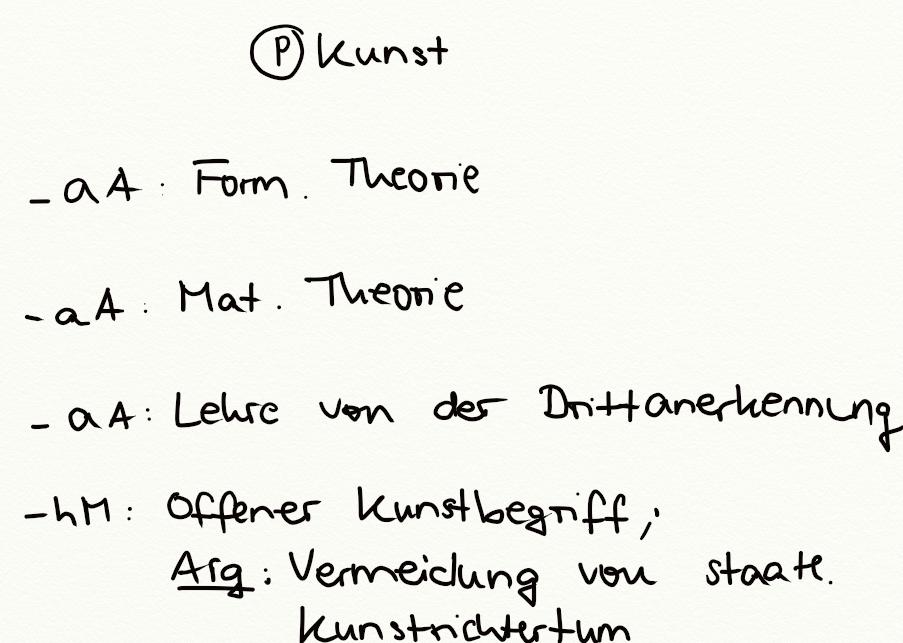 Ⓟ Kunst
- aA: Form. Theorie
- aA: Mat. Theorie
- aA: Lehre von der Drittanerkennung
- hM: Offener Kunstbegriff;
Arg: Vermeidung von staatl.
Kunstrichtertum